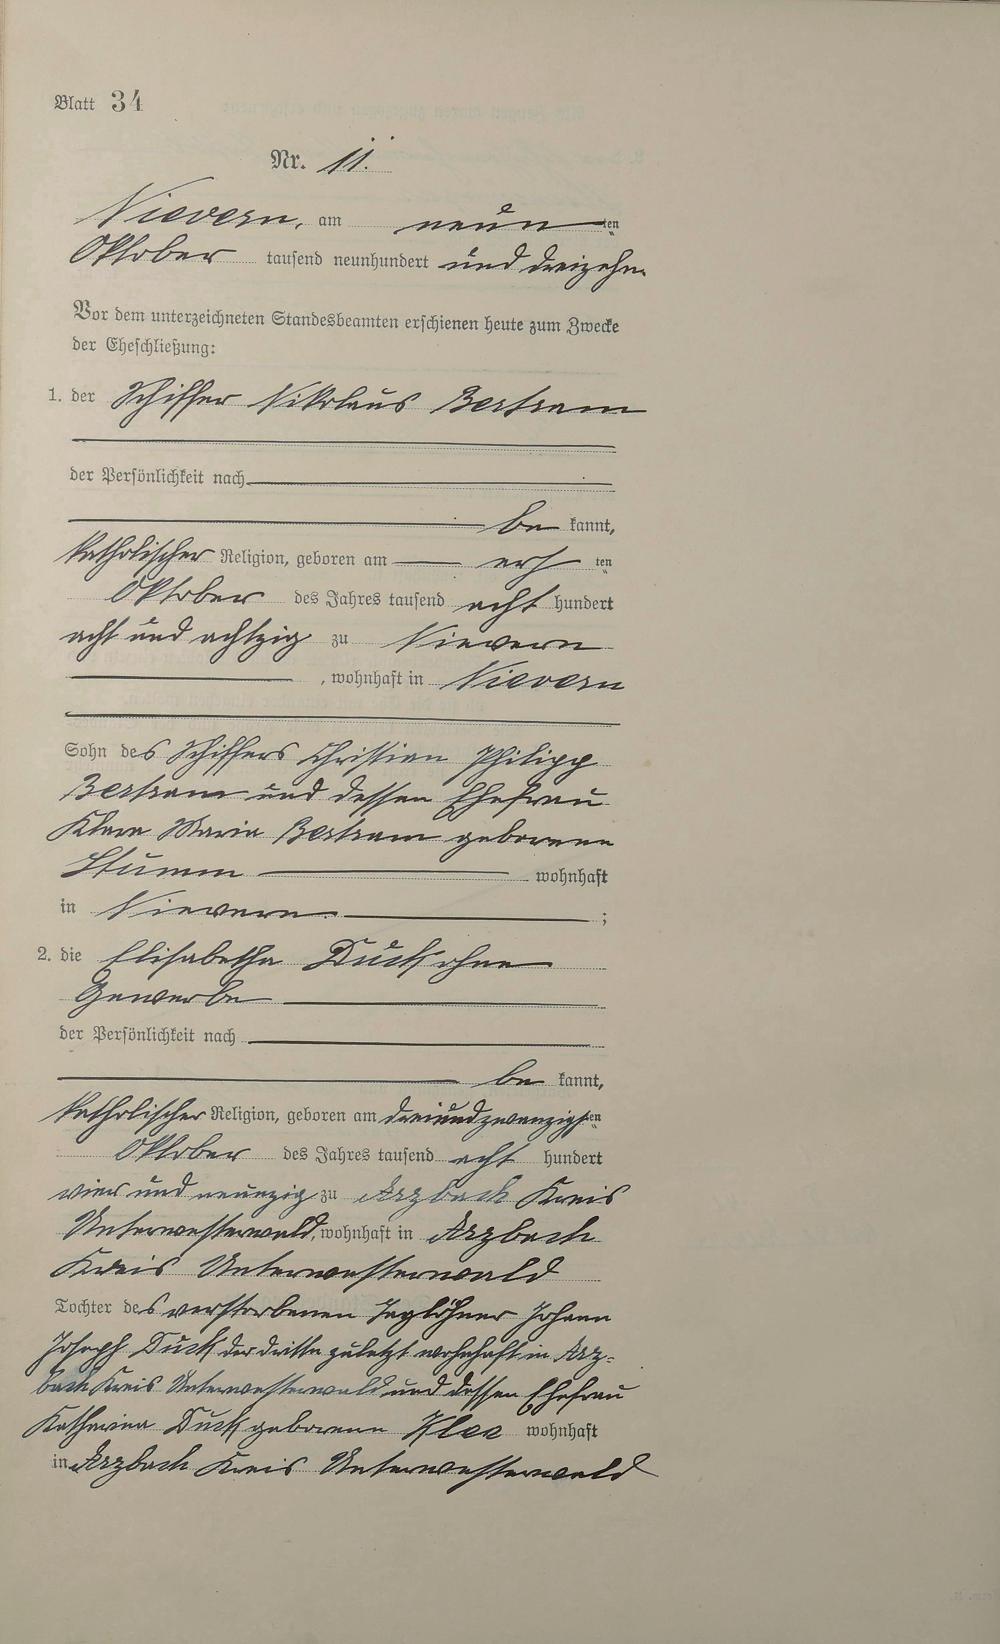 Blatt 34
Nr. 11.
Nievern, am neun ten
Oktober tausend neunhundert und dreizehn
Vor dem unterzeichneten Standesbeamten erschienen heute zum Zwecke
der Eheschließung:
1. der Schiffer Nikolaus Bertram
der Persönlichkeit nach
be kannt,
katholischer Religion, geboren am erst ten
Oktober des Jahres tausend acht hundert
acht und achtzig zu Nievern
, wohnhaft in Nievern
Sohn des Schiffers Christian Philipp
Bertram und dessen Ehefrau
Klara Maria Bertram geborenen
Stumm wohnhaft
in Nievern ;
2. die Elisabetha Duck ohne
Gewerbe
der Persönlichkeit nach
be kannt,
katholischer Religion, geboren am dreiundzwanzigsten
Oktober des Jahres tausend acht hundert
vier und neunzig zu Arzbach Kreis
Unterwesterwald, wohnhaft in Arzbach
Kreis Unterwesterwald
Tochter des verstorbenen Taglöhner Johann
Joseph Duck der dritte zuletzt wohnhaft in Arz=
bach Kreis Unterwesterwald und dessen Ehefrau
Katharina Duck geborenen Klee wohnhaft
in Arzbach Kreis Unterwesterwald